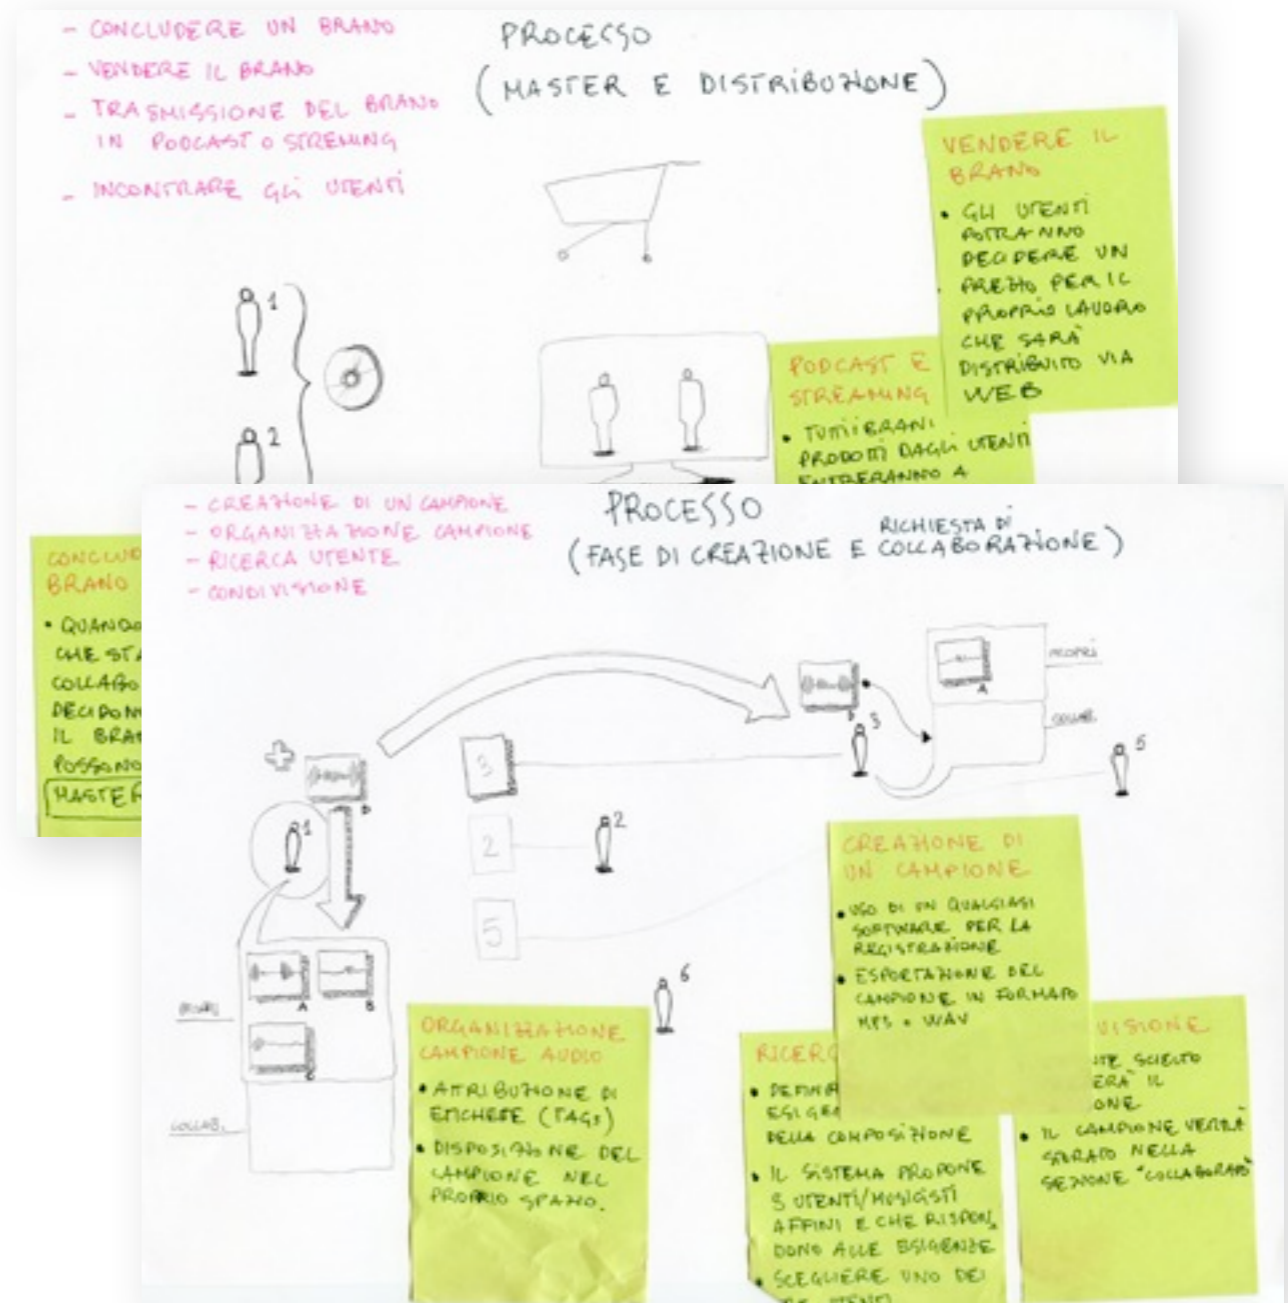 - CONCLUDERE UN BRANO
- VENDERE IL BRANO
- TRASMISSIONE DEL BRANO
IN PODCAST O STREMING
- INCONTRARE GLI UTENTI
PROCESSO
(MASTER E DISTRIBUZIONE)
VENDERE IL
BRANO
• GLI UTENTI
POTRANNO
DECIDERE UN
PREZZO PER IL
PROPRIO LAVORO
CHE SARÀ
DISTRIBUITO VIA
WEB
PODCAST E
STREAMING
• TUTTI I BRANI
PRODOTTI DAGLI UTENTI
ENTRERANNO A
1
2
CONCLUD
BRANO
• QUANDO
CHE STA
COLLABO
DECIDON
IL BRA
POSSONO
MASTER
- CREAZIONE DI UN CAMPIONE
- ORGANIZZAZIONE CAMPIONE
- RICERCA UTENTE
- CONDIVISIONE
PROCESSO
(FASE DI CREAZIONE E RICHIESTA DI COLLABORAZIONE)
A
PROPRI
COLLAB.
3
5
D
1
3
2
2
5
6
A
B
C
PROPRI
COLLAB.
CREAZIONE DI
UN CAMPIONE
• USO DI UN QUALSIASI
SOFTWARE PER LA
REGISTRAZIONE
• ESPORTAZIONE DEL
CAMPIONE IN FORMATO
MP3 o WAV
ORGANIZZAZIONE
CAMPIONE AUDIO
• ATTRIBUZIONE DI
ETICHETE (TAGS)
• DISPOSIZIONE DEL
CAMPIONE NEL
PROPRIO SPAZIO.
RICERC
• DEFINIR
ESIGEN
DELLA COMPOSIZIONE
• IL SISTEMA PROPONE
3 UTENTI/MUSICISTI
AFFINI E CHE RISPON,
DONO ALLE ESIGENZE
• SCEGLIERE UNO DEI
UTENTI
VISIONE
NTE SCELTO
ERÀ IL
ONE
• IL CAMPIONE VERRÀ
NELLA
SEZIONE "COLLABORATO"